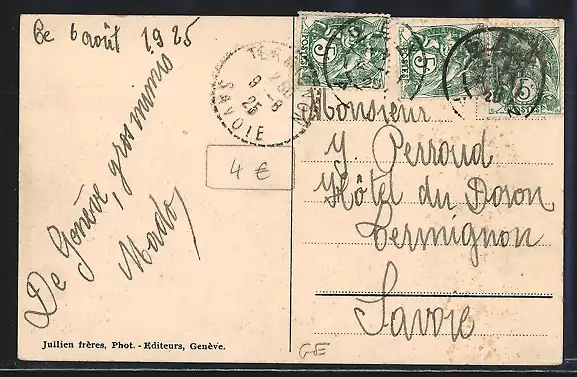 Le 6 août 1925
De Genève, gros mimis
Mado
4 €
TER
9-8
25
SAVOIE
5
5
5
POSTES
25
Monsieur
Y. Perroud
Hôtel du Doron
Termignon
Savoie
Jullien frères, Phot. - Editeurs, Genève.
GE